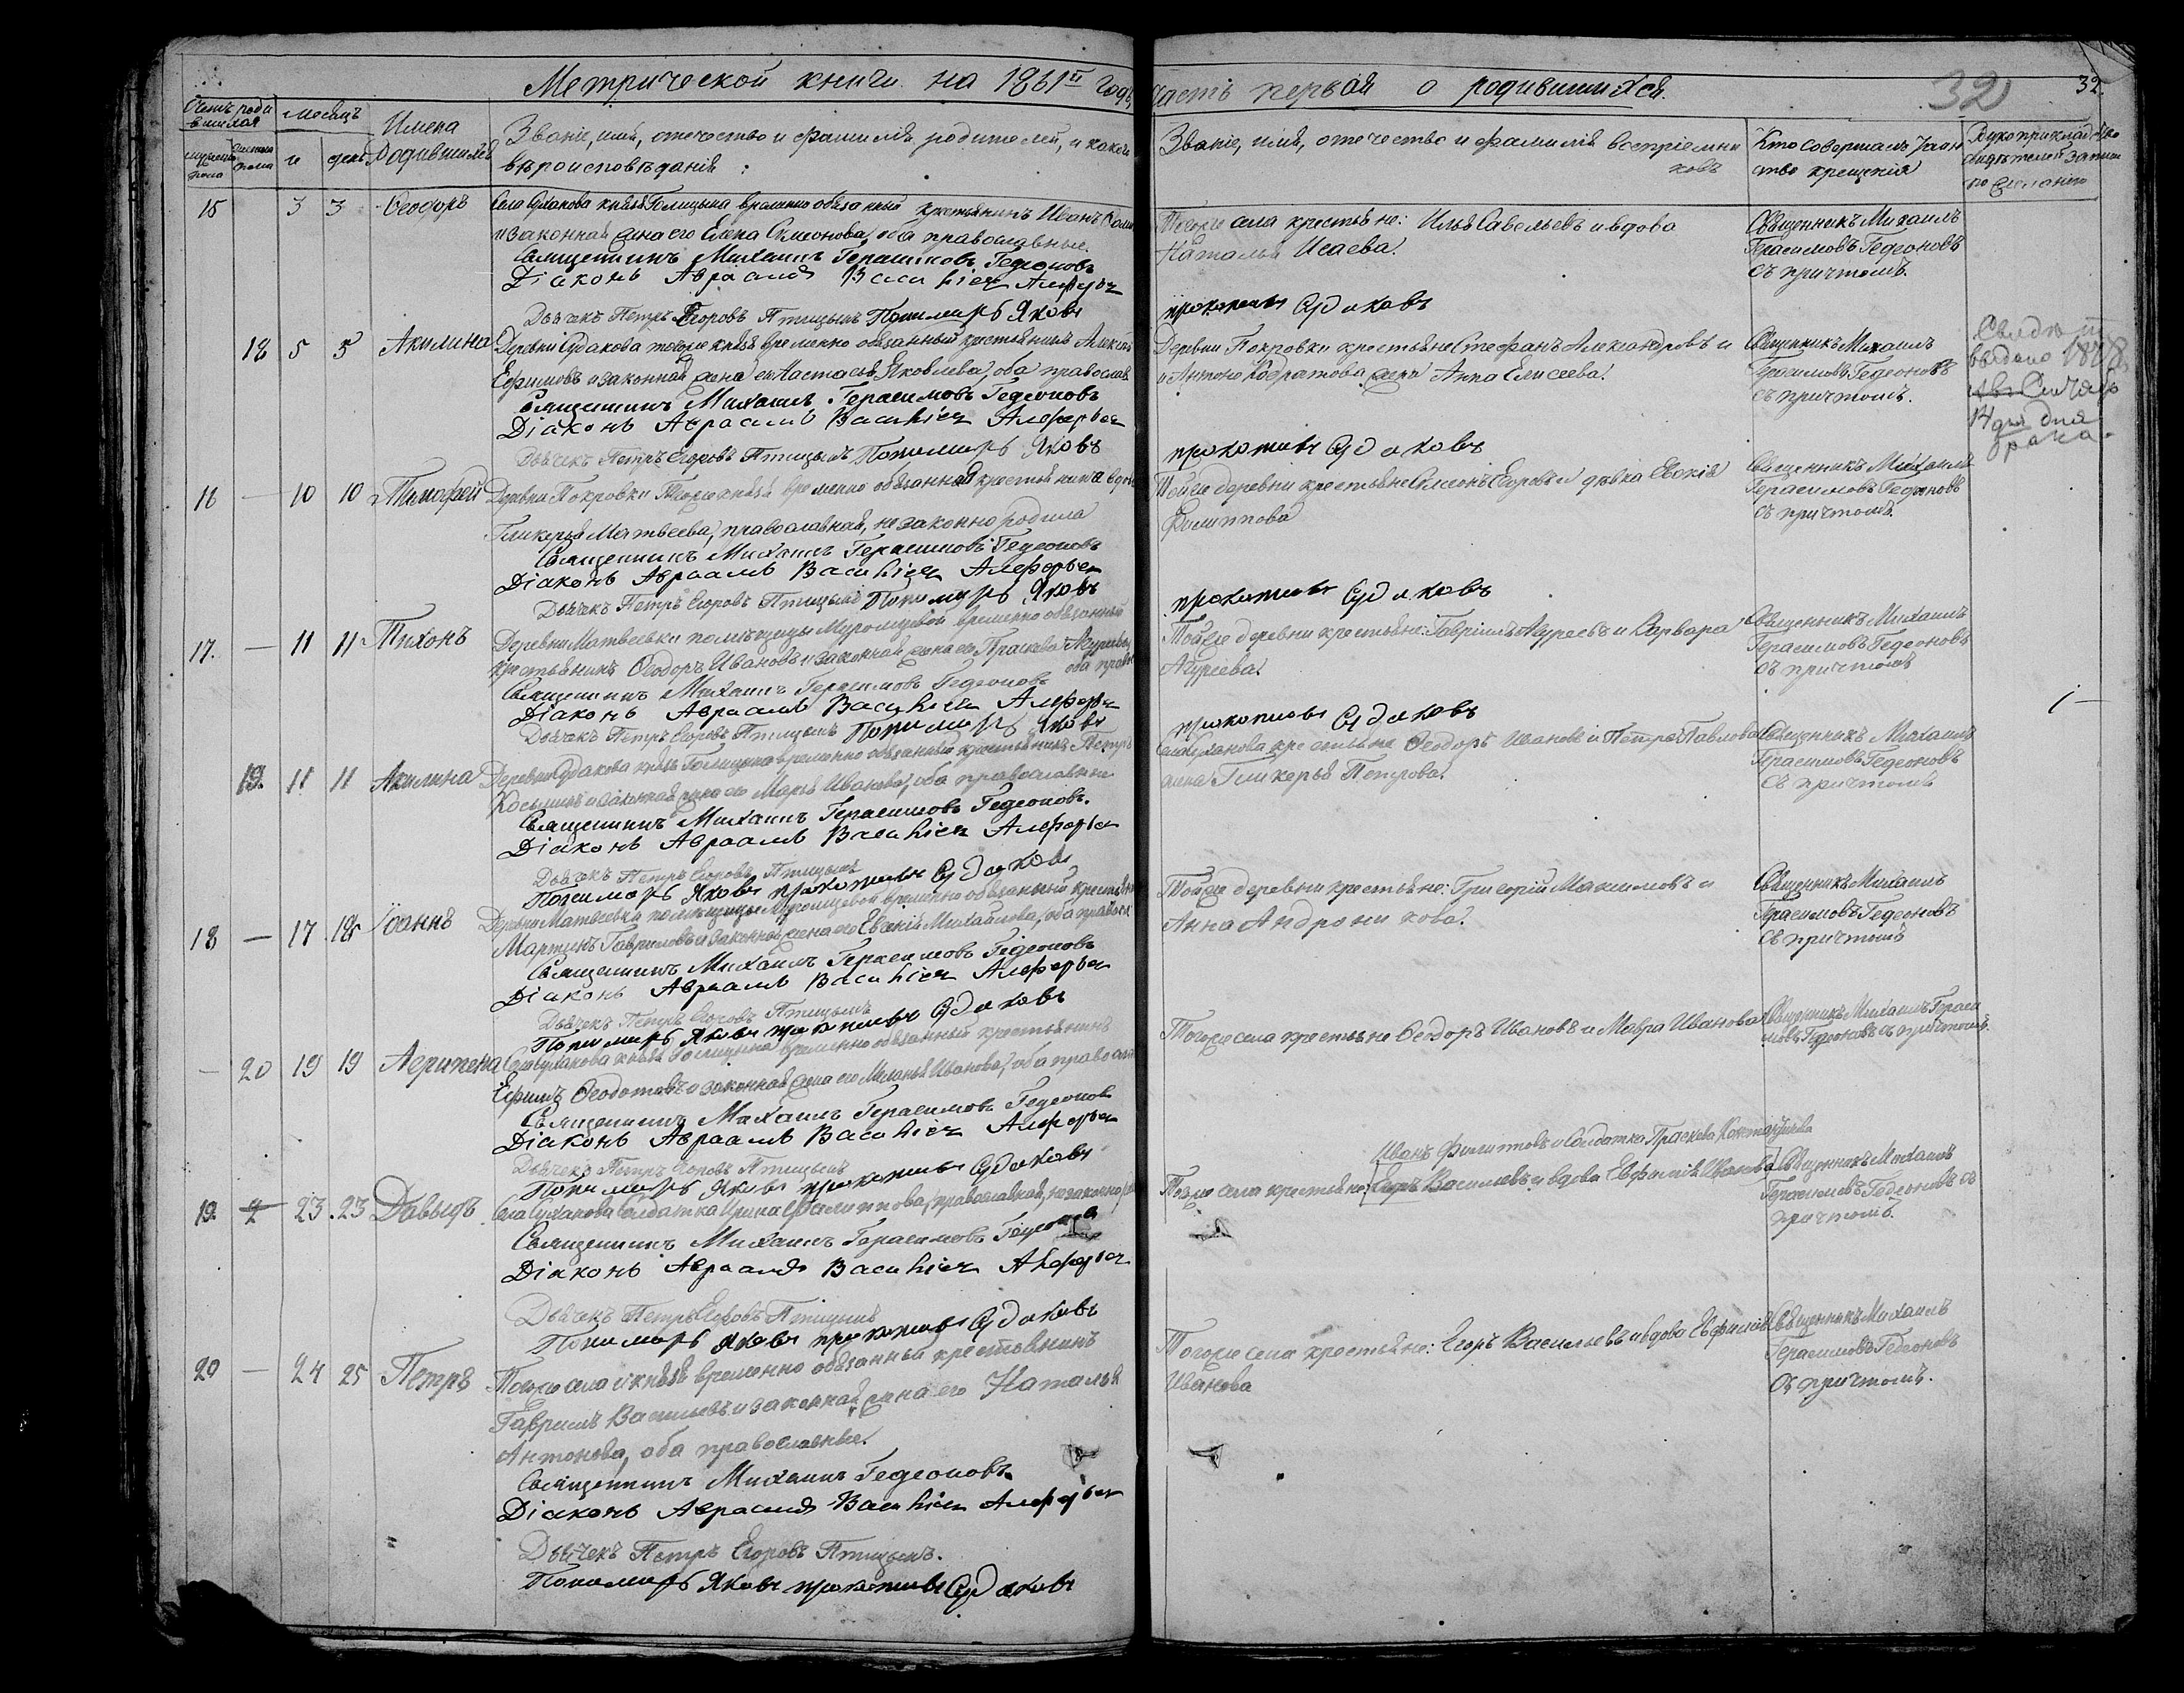 Метрической книги на 1861й годъ,
часть первая о родившихся.
32
32.
Счетъ роди
вшихся
Месяцъ
и
день
Имена
Родившихся
Званіе, имя, отечество и фамилія родителей, и какого
вѣроисповѣданія:
Званіе, имя, отечество и фамилія воспріемни
ковъ
Кто совершалъ таин
ство крещенія
Рукоприкладство
свидѣтелей записи
по желанію
15 3 3 Ѳеодоръ
Села Суханова князя Голицына временно обязанный крестьянинъ Иванъ
и законная жена его Елена Симеонова, оба православные.
Священникъ Михаилъ Герасимовъ Гедеоновъ
Діаконъ Авраамъ Васильевъ Алферьев
Дьячекъ Петръ Егоровъ Птицынъ Пономарь Яковъ
Тогоже села крестьяне: Илья Савельевъ и вдова
Наталья Исаева.
прокопиевъ Судаковъ
Священникъ Михаилъ
Герасимовъ Гедеоновъ
съ причтомъ.
18 5 5 Акилина
Деревни Судакова тогоже князя временно обязанный крестьянинъ Алексѣй
Ефимовъ и законная жена его Настасья Яковлева, оба православ
Священникъ Михаилъ Герасимовъ Гедеоновъ
Діаконъ Авраамъ Васильев Алферьев
Дьячекъ Петръ Егоровъ Птицынъ Пономарь Яковъ
Деревни Покровки крестьяне Стефанъ Александровъ и
и Антона Кодратова жена Анна Елисеева.
прокопиевъ Судаковъ
Священникъ Михаилъ
Герасимовъ Гедеоновъ
съ причтомъ.
выдано 1878
14 для
брака.
16 — 10 10 Тимофей
Деревни Покровки Тогоже князя временно обязанная крестьянина вдова
Гликерья Матвеева, православная, незаконно родила
Священникъ Михаилъ Герасимовъ Гедеоновъ
Діаконъ Авраамъ Васильев Алферьев
Дьячекъ Петръ Егоровъ Птицынъ Пономарь Яковъ
Тойже деревни крестьяне Симеонъ Егоровъ и дѣвка Евдокія
Филиппова
прокопиевъ Судаковъ
Священникъ Михаилъ
Герасимовъ Гедеоновъ
съ причтомъ.
17. — 11 11 Тихонъ
Деревни Матвеевки помѣщицы Муромцевой временно обязанный
крестьянинъ Ѳеодоръ Ивановъ и законная жена его Прасковья Агуреева,
оба правос
Священникъ Михаилъ Герасимовъ Гедеоновъ
Діаконъ Авраамъ Васильев Алферьев
Дьячекъ Петръ Егоровъ Птицынъ Пономарь Яковъ
Тойже деревни крестьяне: Гавріилъ Агуреевъ и Варвара
Агуреева.
прокопиевъ Судаковъ
Священникъ Михаилъ
Герасимовъ Гедеоновъ
съ причтомъ
19. 11 11 Акилина
Деревни Судакова князя Голицына временно обязанный крестьянинъ Петръ
Косьминъ и законная жена его Марья Иванова, оба православные
Священникъ Михаилъ Герасимовъ Гедеоновъ.
Діаконъ Авраамъ Васильев Алферьев
Дьячекъ Петръ Егоровъ Птицынъ
Пономарь Яковъ прокопиевъ Судаковъ
Села Суханова крестьяне Ѳеодоръ Ивановъ и Петра Павлова
жена Гликерья Петрова.
Священникъ Михаилъ
Герасимовъ Гедеоновъ
съ причтомъ
18 — 17 18 Іоаннъ
Деревни Матвеевки помѣщицы Муромцевой временно обязанный крестьянинъ
Мартинъ Гавриловъ и законная жена его Евгенія Михайлова, оба правосл
Священникъ Михаилъ Герасимовъ Гедеоновъ
Діаконъ Авраамъ Васильев Алферьев
Дьячекъ Петръ Егоровъ Птицынъ
Пономарь Яковъ прокопиевъ Судаковъ
Тойже деревни крестьяне: Григорій Максимовъ и
Анна Андроникова.
Священникъ Михаилъ
Герасимовъ Гедеоновъ
съ причтомъ
— 20 19 19 Агрипена
Села Суханова князя Голицына временно обязанный крестьянинъ
Ефимъ Ѳеодотовъ и законная жена его Меланья Иванова, оба правосла
Священникъ Михаилъ Герасимовъ Гедеонов
Діаконъ Авраамъ Васильев Алферьев
Дьячекъ Петръ Егоровъ Птицынъ
Пономарь Яковъ прокопиевъ Судаковъ
Тогоже села крестьяне Ѳеодоръ Ивановъ и Мавра Иванова
Священникъ Михаилъ Гераси
мовъ Гедеоновъ съ причтомъ.
19. 23. 23 Давыдъ
Села Суханова солдатка Ирина Филиппова, православная, незаконно
Священникъ Михаилъ Герасимовъ Гедеонов
Діаконъ Авраамъ Васильев Алферьев
Дьячекъ Петръ Егоровъ Птицынъ
Пономарь Яковъ прокопиевъ Судаковъ
Иванъ Филипповъ и солдатка Прасковья
Тогоже села крестьяне: Егоръ Васильевъ и вдова Евфимія Иванова
Священникъ Михаилъ
Герасимовъ Гедеоновъ съ
причтомъ.
20 — 24 25 Петръ
Тогоже села и князя временно обязанный крестьянинъ
Гаврилъ Васильевъ и законная жена его Наталья
Антонова, оба православные.
Священникъ Михаилъ Гедеоновъ.
Діаконъ Авраамъ Васильев Алферьев
Дьячекъ Петръ Егоровъ Птицынъ.
Пономарь Яковъ прокопиевъ Судаковъ
Тогоже села крестьяне: Егоръ Васильевъ и вдова Евфимія
Иванова
Священникъ Михаилъ
Герасимовъ Гедеоновъ
съ причтомъ.